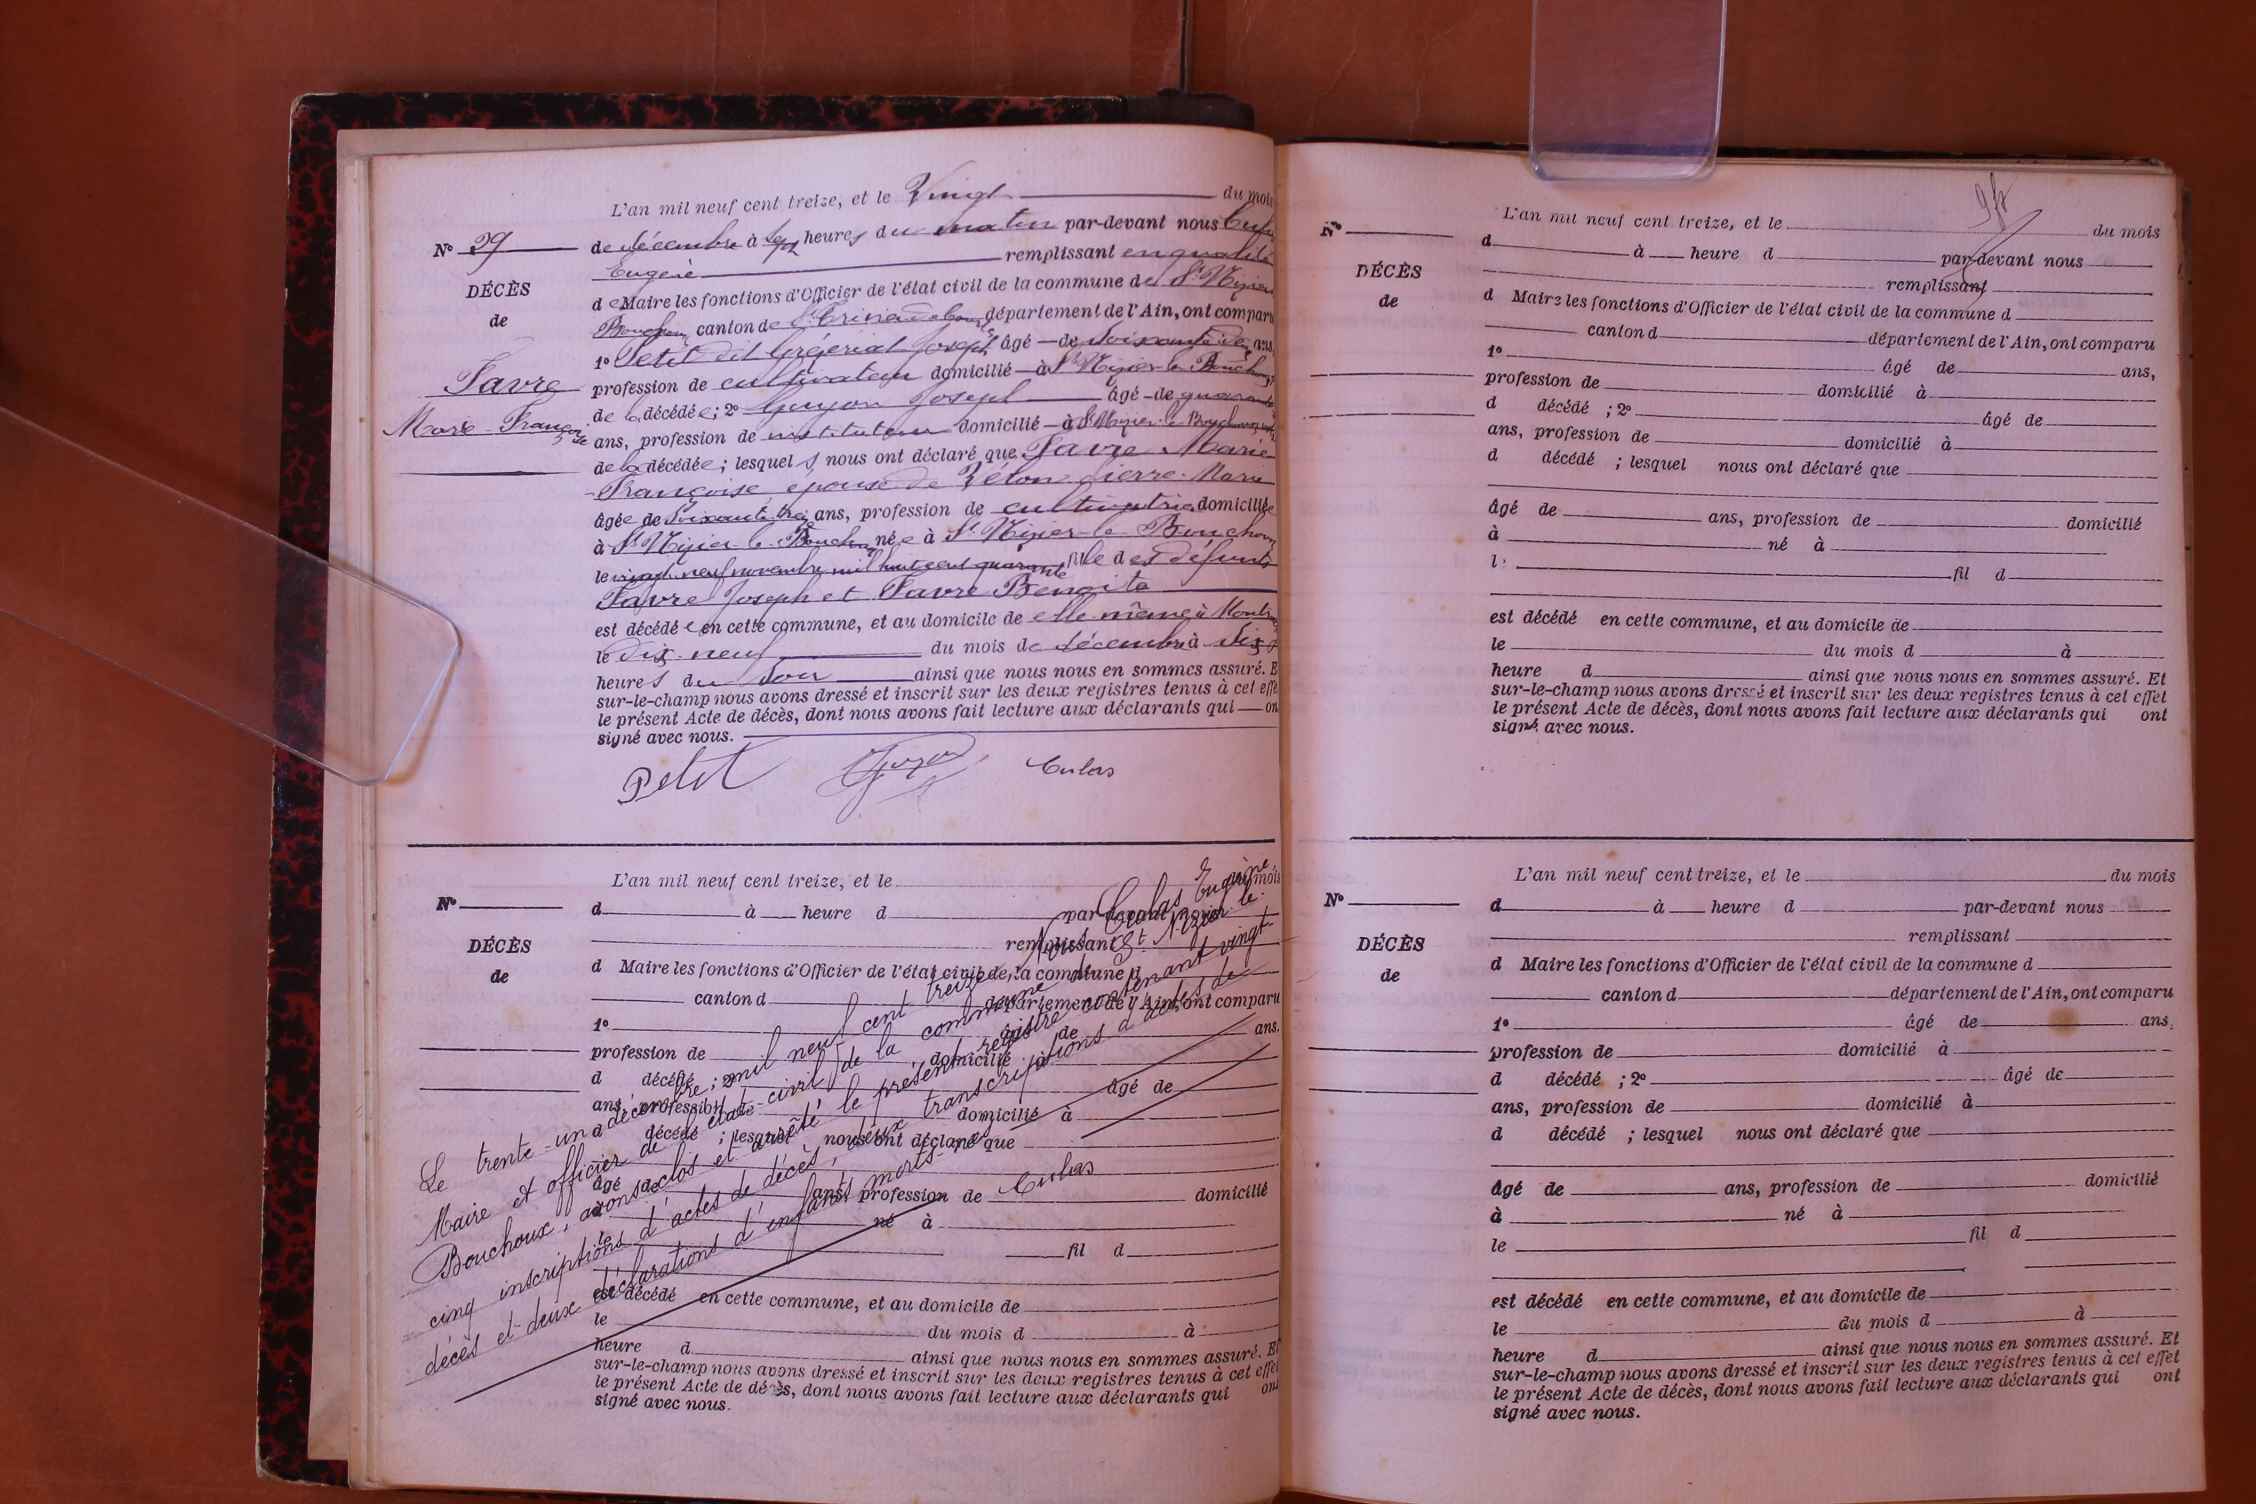 L'an mil neuf cent treize, et le Vingt du mois
N° 29
de décembre à sept heures du matin par-devant nous Culas
Eugène remplissant en qualité
DÉCÈS
de
de Maire les fonctions d'Officier de l'état civil de la commune de St Nizier
Bouchoux canton de St Trivier de Courtes département de l'Ain, ont comparu
1° Petit dit Grégeriat Joseph âgé de soixante ans,
Favre
Marie Françoise
profession de cultivateur domicilié à St Nizier-le Bouchoux
de la décédée ; 2° Guyon Joseph âgé de quarante
ans, profession de instituteur domicilié à St Nizier le Bouchoux
de la décédée ; lesquels nous ont déclaré que Favre Marie
Françoise épouse de Vélon Pierre-Marie
âgée de soixante treize ans, profession de cultivatrice domiciliée
à St Nizier-le Bouchoux née à St Nizier-le Bouchoux
le vingt neuf novembre mil huit cent quarante fille des défunts
Favre Joseph et Favre Benoite
est décédée en cette commune, et au domicile de elle-même à
le dix-neuf du mois de décembre à dix
heures du soir ainsi que nous nous en sommes assuré. Et
sur-le-champ nous avons dressé et inscrit sur les deux registres tenus à cet effet
le présent Acte de décès, dont nous avons fait lecture aux déclarants qui ont
signé avec nous.
Petit Guyon Culas
L'an mil neuf cent treize, et le du mois
N°
d à heure d par-devant nous
remplissant
DÉCÈS
de
d Maire les fonctions d'Officier de l'état civil de la commune d
canton d département de l'Ain, ont comparu
1° âgé de ans.
profession de domicilié à
d décédé ; 2° âgé de
ans, profession de domicilié à
d décédé ; lesquel nous ont déclaré que
âgé de ans, profession de domicilié
à né à
le fil d
est décédé en cette commune, et au domicile de
le du mois d à
heure d ainsi que nous nous en sommes assuré. Et
sur-le-champ nous avons dressé et inscrit sur les deux registres tenus à cet effet
le présent Acte de décès, dont nous avons fait lecture aux déclarants qui ont
signé avec nous.
Le trente-un décembre mil neuf cent treize, Nous Culas Eugène
Maire et officier de l'état-civil de la commune de St Nizier-le-
Bouchoux, avons clos et arrêté le présent registre contenant vingt-
cinq inscriptions d'actes de décès, deux transcriptions d'actes de
décès et deux déclarations d'enfants morts-nés
Culas
L'an mil neuf cent treize, et le du mois
N°
d à heure d par-devant nous
remplissant
DÉCÈS
de
d Maire les fonctions d'Officier de l'état civil de la commune d
canton d département de l'Ain, ont comparu
1° âgé de ans,
profession de domicilié à
d décédé ; 2° âgé de
ans, profession de domicilié à
d décédé ; lesquel nous ont déclaré que
âgé de ans, profession de domicilié
à né à
l fil d
est décédé en cette commune, et au domicile de
le du mois d à
heure d ainsi que nous nous en sommes assuré. Et
sur-le-champ nous avons dressé et inscrit sur les deux registres tenus à cet effet
le présent Acte de décès, dont nous avons fait lecture aux déclarants qui ont
signé avec nous.
L'an mil neuf cent treize, et le du mois
N°
d à heure d par-devant nous
remplissant
DÉCÈS
de
d Maire les fonctions d'Officier de l'état civil de la commune d
canton d département de l'Ain, ont comparu
1° âgé de ans,
profession de domicilié à
d décédé ; 2° âgé de
ans, profession de domicilié à
d décédé ; lesquel nous ont déclaré que
âgé de ans, profession de domicilié
à né à
le fil d
est décédé en cette commune, et au domicile de
le du mois d à
heure d ainsi que nous nous en sommes assuré. Et
sur-le-champ nous avons dressé et inscrit sur les deux registres tenus à cet effet
le présent Acte de décès, dont nous avons fait lecture aux déclarants qui ont
signé avec nous.